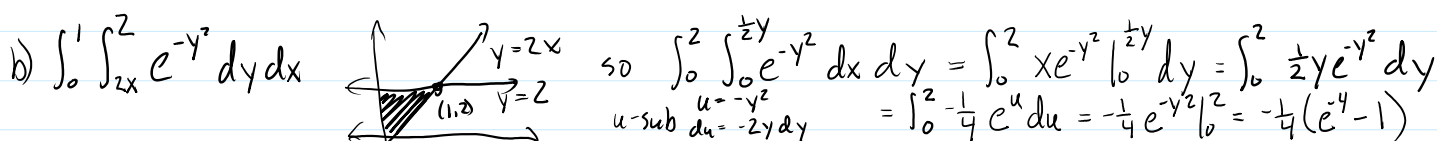 b) ∫₀¹ ∫₂ₓ² e^{-y²} dy dx y=2x y=2 (1,2) so ∫₀² ∫₀^{½y} e^{-y²} dx dy = ∫₀² xe^{-y²} |₀^{½y} dy = ∫₀² ½ye^{-y²} dy
u-sub u=-y² du=-2y dy = ∫₀² -¼ e^u du = -¼ e^{-y²} |₀² = -¼(e^{-4}-1)